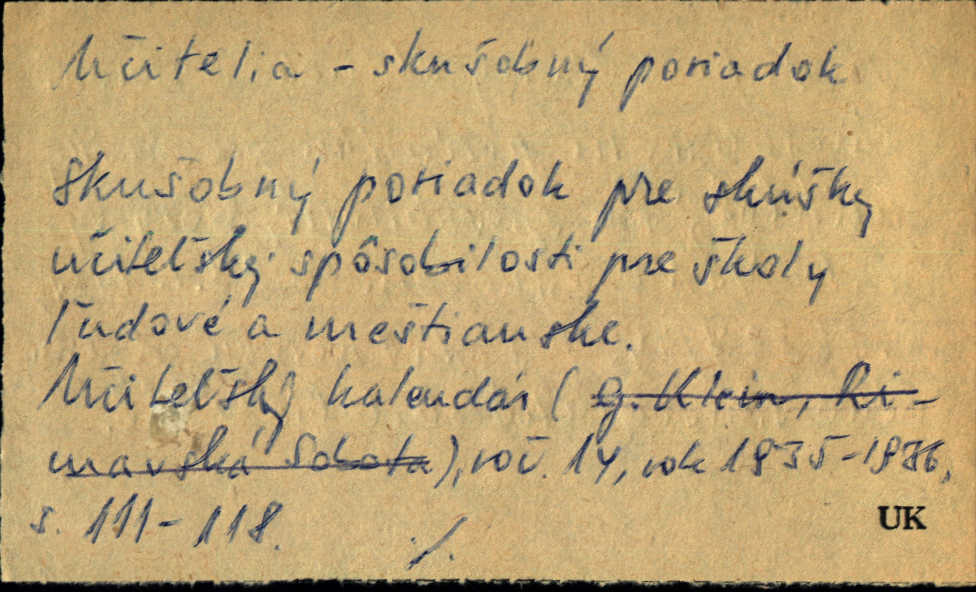 Učitelia - skušobný poriadok
Skušobný poriadok pre skúšky
učiteľskej spôsobilosti pre školy
ľudové a meštianske.
Učiteľský kalendár ( G. Klein, Ri-
mavská Sobota), roč. 14, rok 1935-1936,
s. 111-118. ./.
UK